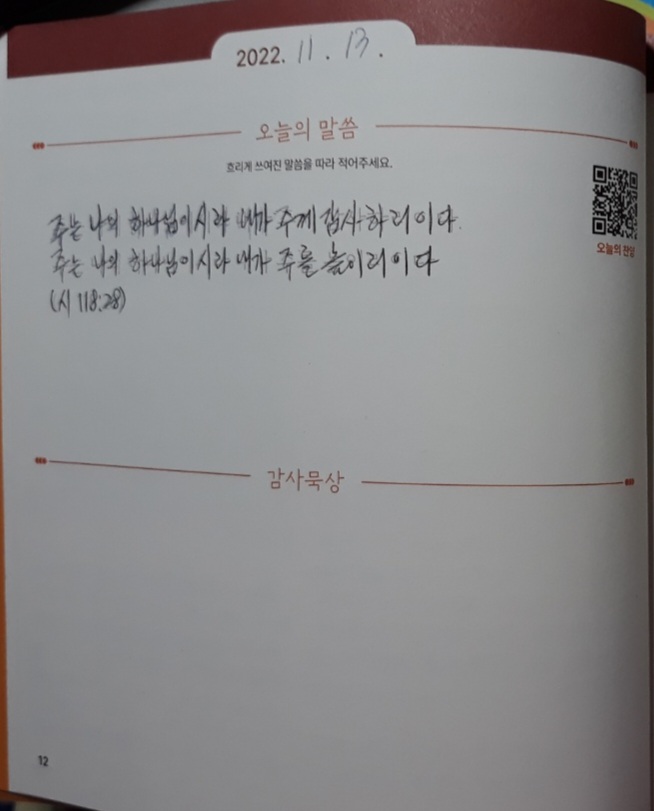 2022. 11. 13.
오늘의 말씀
흐리게 쓰여진 말씀을 따라 적어주세요.
주는 나의 하나님이시라 내가 주께 감사하리이다.
오늘의 찬양
주는 나의 하나님이시라 내가 주를 높이리이다
(시 118:28)
감사묵상
12